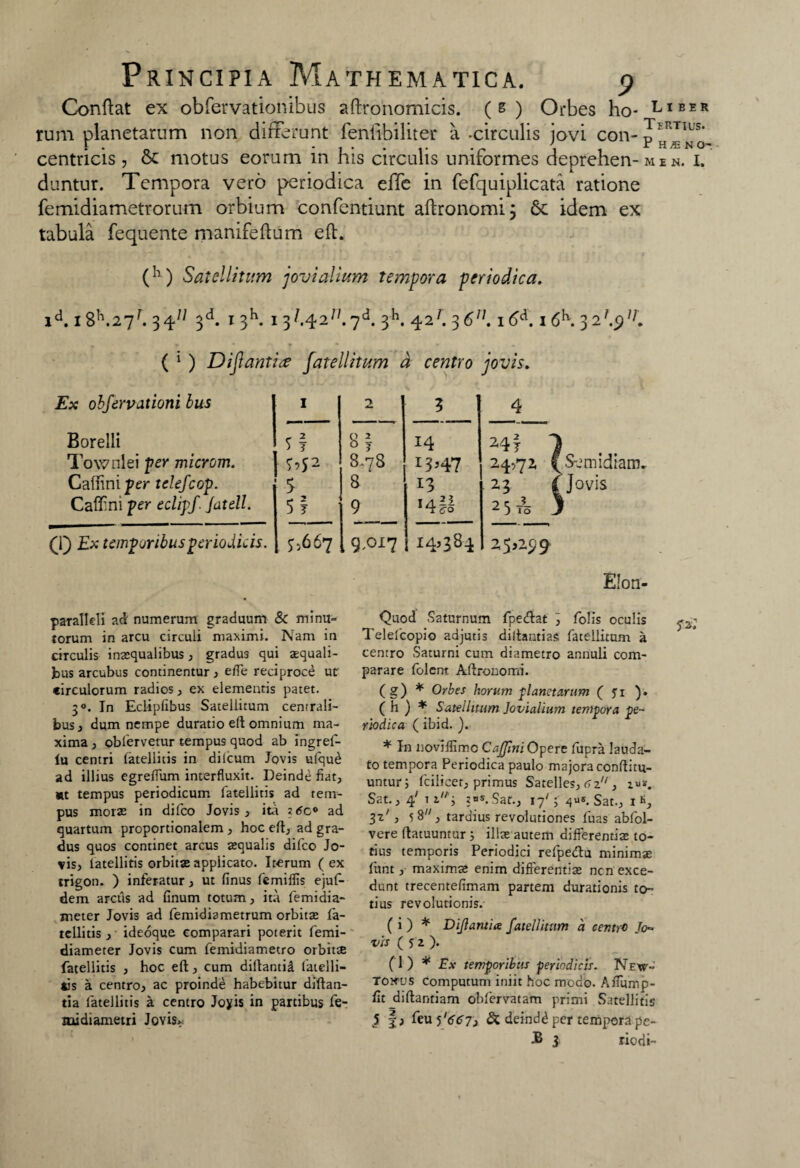 PRINCIPIA MATHEMATICA. 9
Conſtat ex obſervationibus aſtronomicis. ( g ) Orbes ho-
rum planetarum non differunt ſenſibiliter à circulis jovi con-
centricis, & motus eorum in his circulis uniformes deprehen-
duntur. Tempora verò periodica eſſe in ſeſquiplicatâ ratione
ſemidiametrorum orbium conſentiunt aſtronomi; & idem ex
tabulâ ſequente manifeſtum eſt.
LIBER
TERTIUS.
PHÆNO-
MEN. I.
(h) Satellitum jovialium tempora periodica.
1d. 18h. 27′. 34″ 3d. 13h. 13′. 42″. 7d. 3h. 42′. 36″. 16d. 16h. 32′. 9″.
( i ) Diſtantiæ ſatellitum à centro jovis.
Ex obſervationibus 1 2 3 4
Borelli 5 2/3 8 2/3 14 24 2/3
Townlei per microm. 5,52 8,78 13,47 24,72 Semidiam.
Caſſini per teleſcop. 5 8 13 23 Jovis
Caſſini per eclipſ. ſatell. 5 2/3 9 14 23/60 25 3/10
(l) Ex temporibus periodicis. 5,667 9,017 14,384 25,299
Elon-
paralleli ad numerum graduum & minu-
torum in arcu circuli maximi. Nam in
circulis inæqualibus, gradus qui æquali-
bus arcubus continentur, eſſe reciprocè ut
circulorum radios, ex elementis patet.
3º. In Eclipſibus Satellitum centrali-
bus, dum nempe duratio eſt omnium ma-
xima, obſervetur tempus quod ab ingreſ-
ſu centri ſatellitis in diſcum Jovis uſquè
ad illius egreſſum interfluxit. Deindè fiat,
ut tempus periodicum ſatellitis ad tem-
pus moræ in diſco Jovis, ità 360º ad
quartum proportionalem, hoc eſt, ad gra-
dus quos continet arcus æqualis diſco Jo-
vis, ſatellitis orbitæ applicato. Iterum ( ex
trigon. ) inferatur, ut ſinus ſemiſſis ejuſ-
dem arcûs ad ſinum totum, ità ſemidia-
meter Jovis ad ſemidiametrum orbitæ ſa-
tellitis, ideóque comparari poterit ſemi-
diameter Jovis cum ſemidiametro orbitæ
ſatellitis, hoc eſt, cum diſtantiâ ſatelli-
tis à centro, ac proindè habebitur diſtan-
tia ſatellitis à centro Jovis in partibus ſe-
midiametri Jovis.
Quod Saturnum ſpectat, ſolis oculis
Teleſcopio adjutis diſtantias ſatellitum à
centro Saturni cum diametro annuli com-
parare ſolent Aſtronomi.
( g ) * Orbes horum planetarum ( 51 ).
( h ) * Satellitum Jovialium tempora pe-
riodica ( ibid. ).
* In noviſſimo Caſſini Opere ſuprà lauda-
to tempora Periodica paulo majora conſtitu-
untur; ſcilicet, primus Satelles, 62″, 2us.
Sat., 4′ 12″; 3us. Sat., 17′; 4us. Sat., 1h,
32′, 58″, tardius revolutiones ſuas abſol-
vere ſtatuuntur; illæ autem differentiæ to-
tius temporis Periodici reſpectu minimæ
ſunt, maximæ enim differentiæ non exce-
dunt trecenteſimam partem durationis to-
tius revolutionis.
( i ) * Diſtantiæ ſatellitum à centro Jo-
vis ( 52 ).
( l ) * Ex temporibus periodicis. NEW-
TONUS computum iniit hoc modo. Aſſump-
ſit diſtantiam obſervatam primi Satellitis
5 2/3, ſeu 5′667, & deindè per tempora pe-
52.
B 3 riodi-